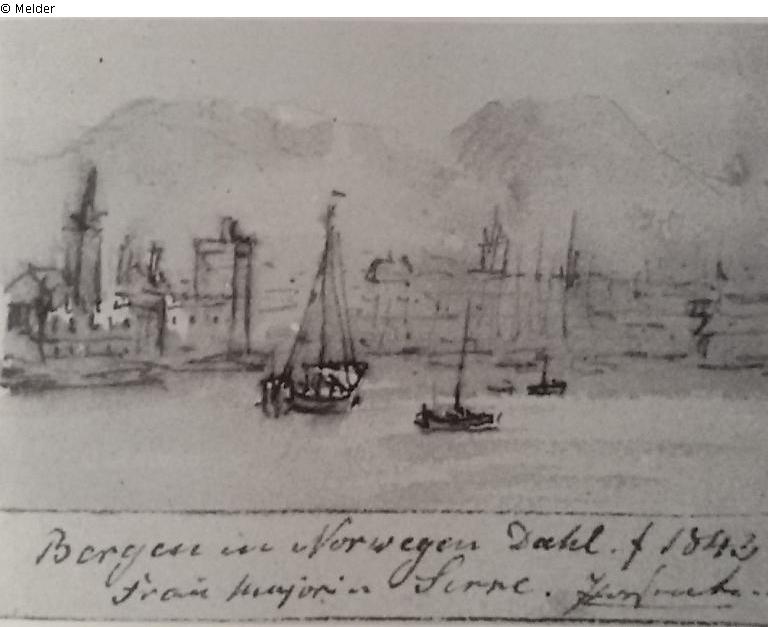 © Melder
Bergen in Norwegen Dahl. f 1843
Frau Majorin Serre.